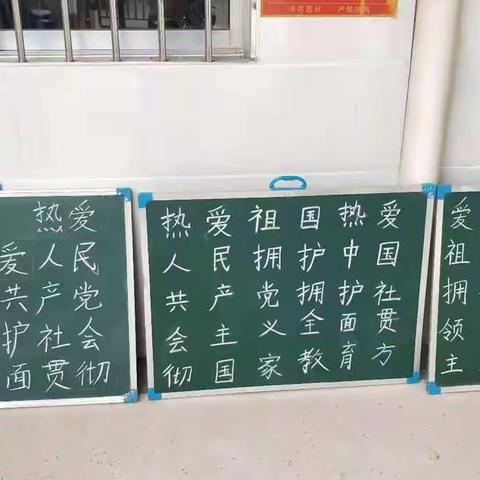 热爱
爱人民
共产党
护社会
面贯彻
热爱祖国热爱
人民拥护中国
共产党拥护社
会主义全面贯
彻国家教育方
爱
祖
拥
领
主